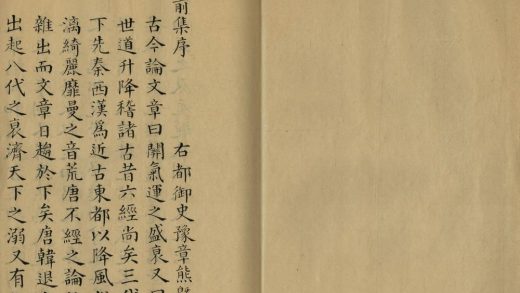 前集序
右都御史豫章熊
古今論文章曰關氣運之盛衰又曰
世道升降稽諸古昔六經尚矣三代
下先秦西漢為近古東都以降風
漓綺麗靡曼之音荒唐不經之論
雜出而文章日趨於下矣唐韓退
出起八代之衰濟天下之溺又有